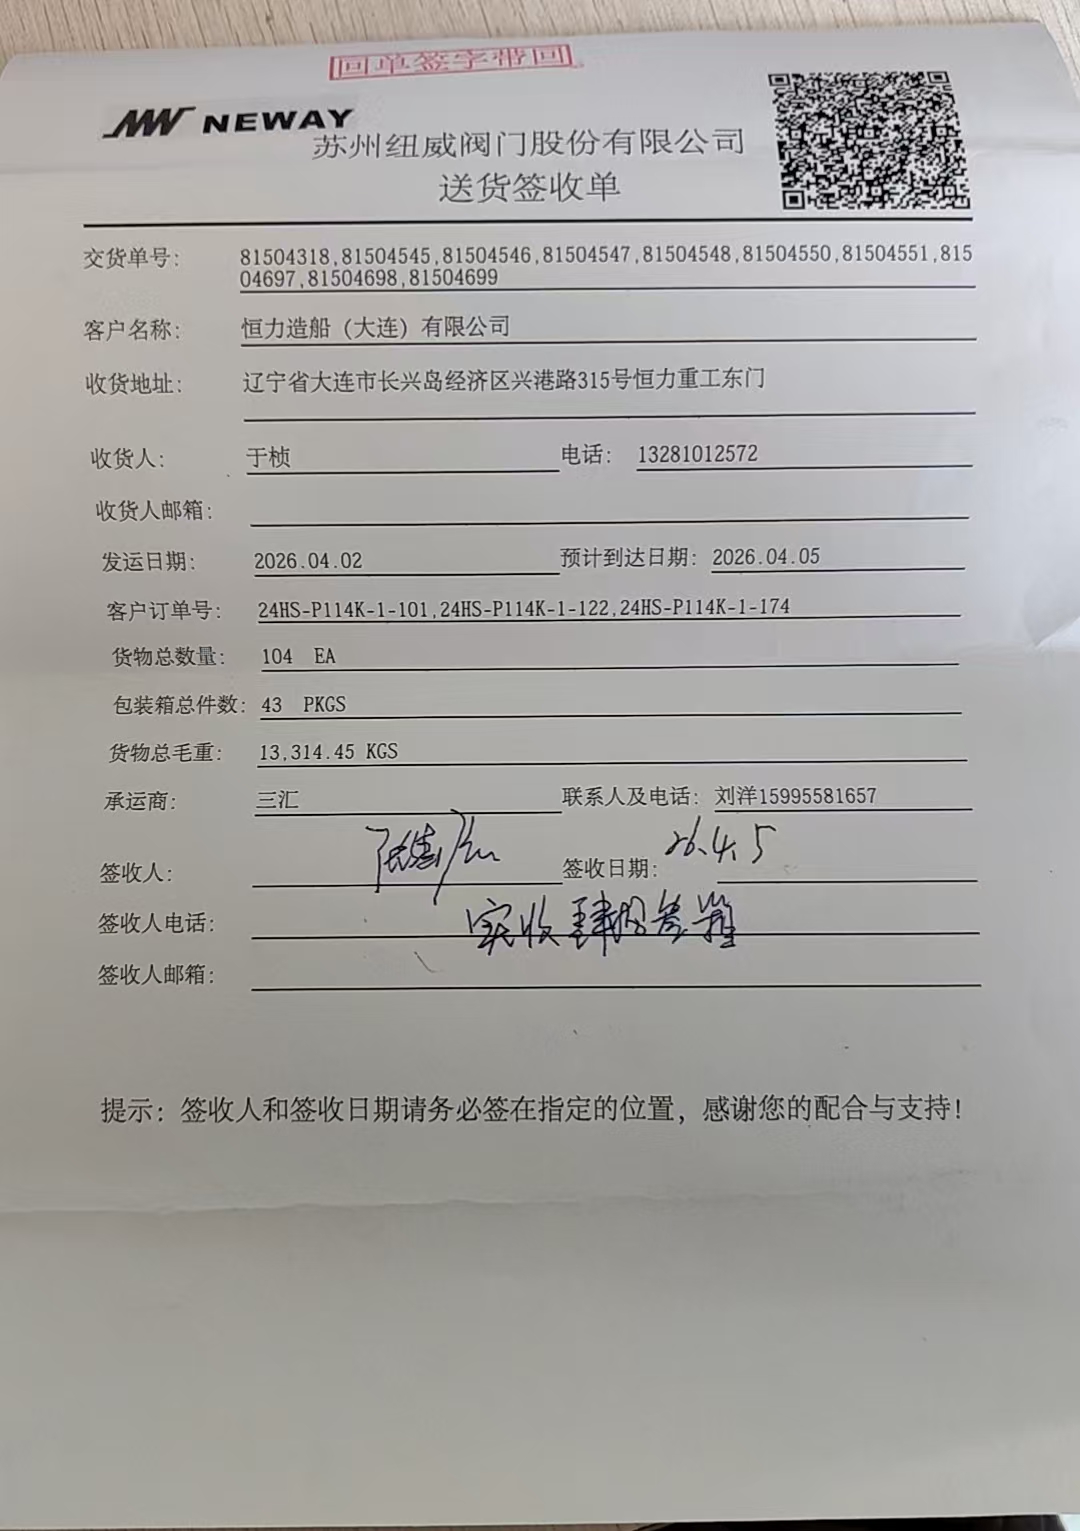 回单签字带回
NEWAY
苏州纽威阀门股份有限公司
送货签收单
交货单号: 81504318,81504545,81504546,81504547,81504548,81504550,81504551,815
04697,81504698,81504699
客户名称: 恒力造船（大连）有限公司
收货地址: 辽宁省大连市长兴岛经济区兴港路315号恒力重工东门
收货人: 于桢 电话: 13281012572
收货人邮箱:
发运日期: 2026.04.02 预计到达日期: 2026.04.05
客户订单号: 24HS-P114K-1-101,24HS-P114K-1-122,24HS-P114K-1-174
货物总数量: 104 EA
包装箱总件数: 43 PKGS
货物总毛重: 13,314.45 KGS
承运商: 三汇 联系人及电话: 刘洋15995581657
签收人: 签收日期: 26.4.5
签收人电话: 实收肆拾叁箱
签收人邮箱:
提示: 签收人和签收日期请务必签在指定的位置, 感谢您的配合与支持!